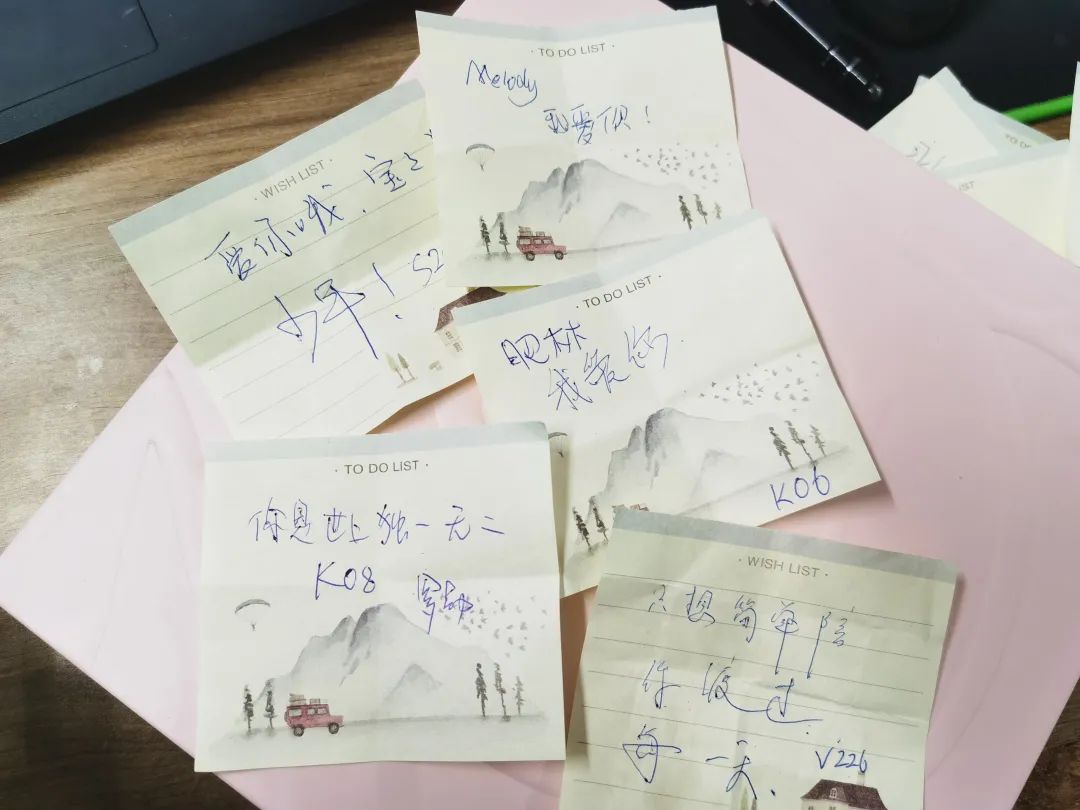 · TO DO LIST ·
Melody
我爱你!
· WISH LIST ·
爱你哦.宝
! 52
· TO DO LIST ·
肥林
我爱你.
K06
· TO DO LIST ·
你是世上独一无二
K08
· WISH LIST ·
只想简单陪
你渡过
每一天.
V226
TO DO
IST